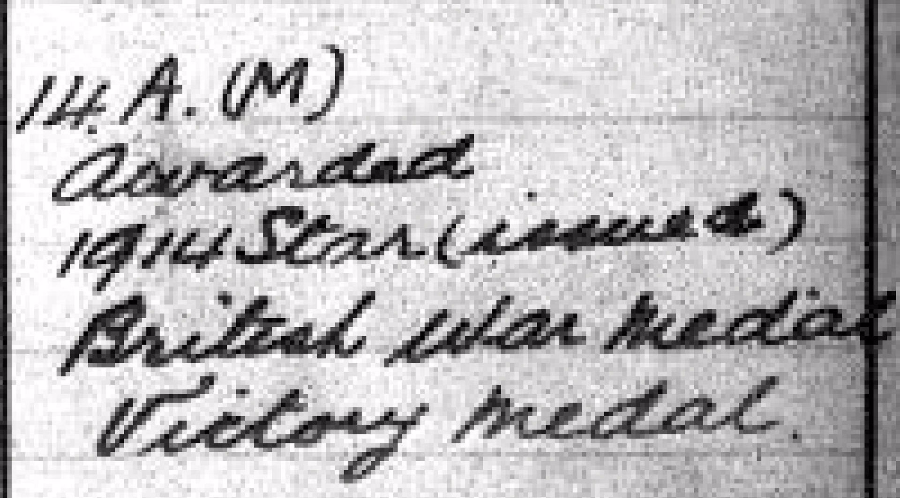 14. A. (M)
Awarded
1914 Star (issued)
British War Medal
Victory Medal.